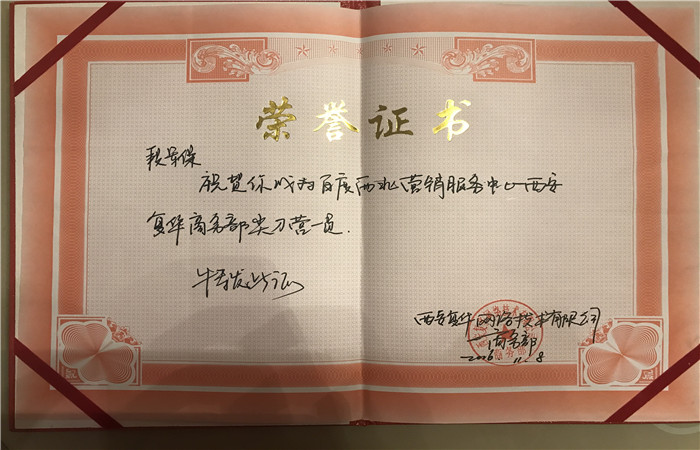 荣誉证书
段荣保
祝贺你成为百度西北营销服务中心西安
复华商务部尖刀营一员.
特发此证
西安复华网络技术有限公司
商务部
2006 11.8